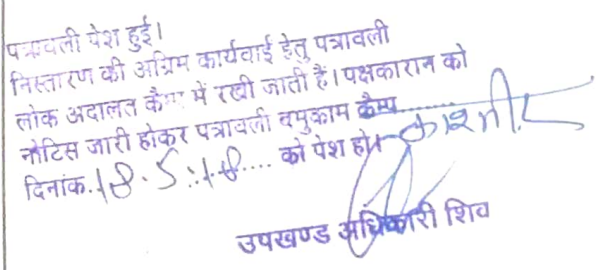 पत्रावली पेश हुई।
निस्तारण की अग्रिम कार्यवाई हेतु पत्रावली
लोक अदालत कैम्प में रखी जाती है। पक्षकारान को
नोटिस जारी होकर पत्रावली बमुकाम कैम्प......काश्मीर
दिनांक.18.5.18.... को पेश हो।
उपखण्ड अधिकारी शिव